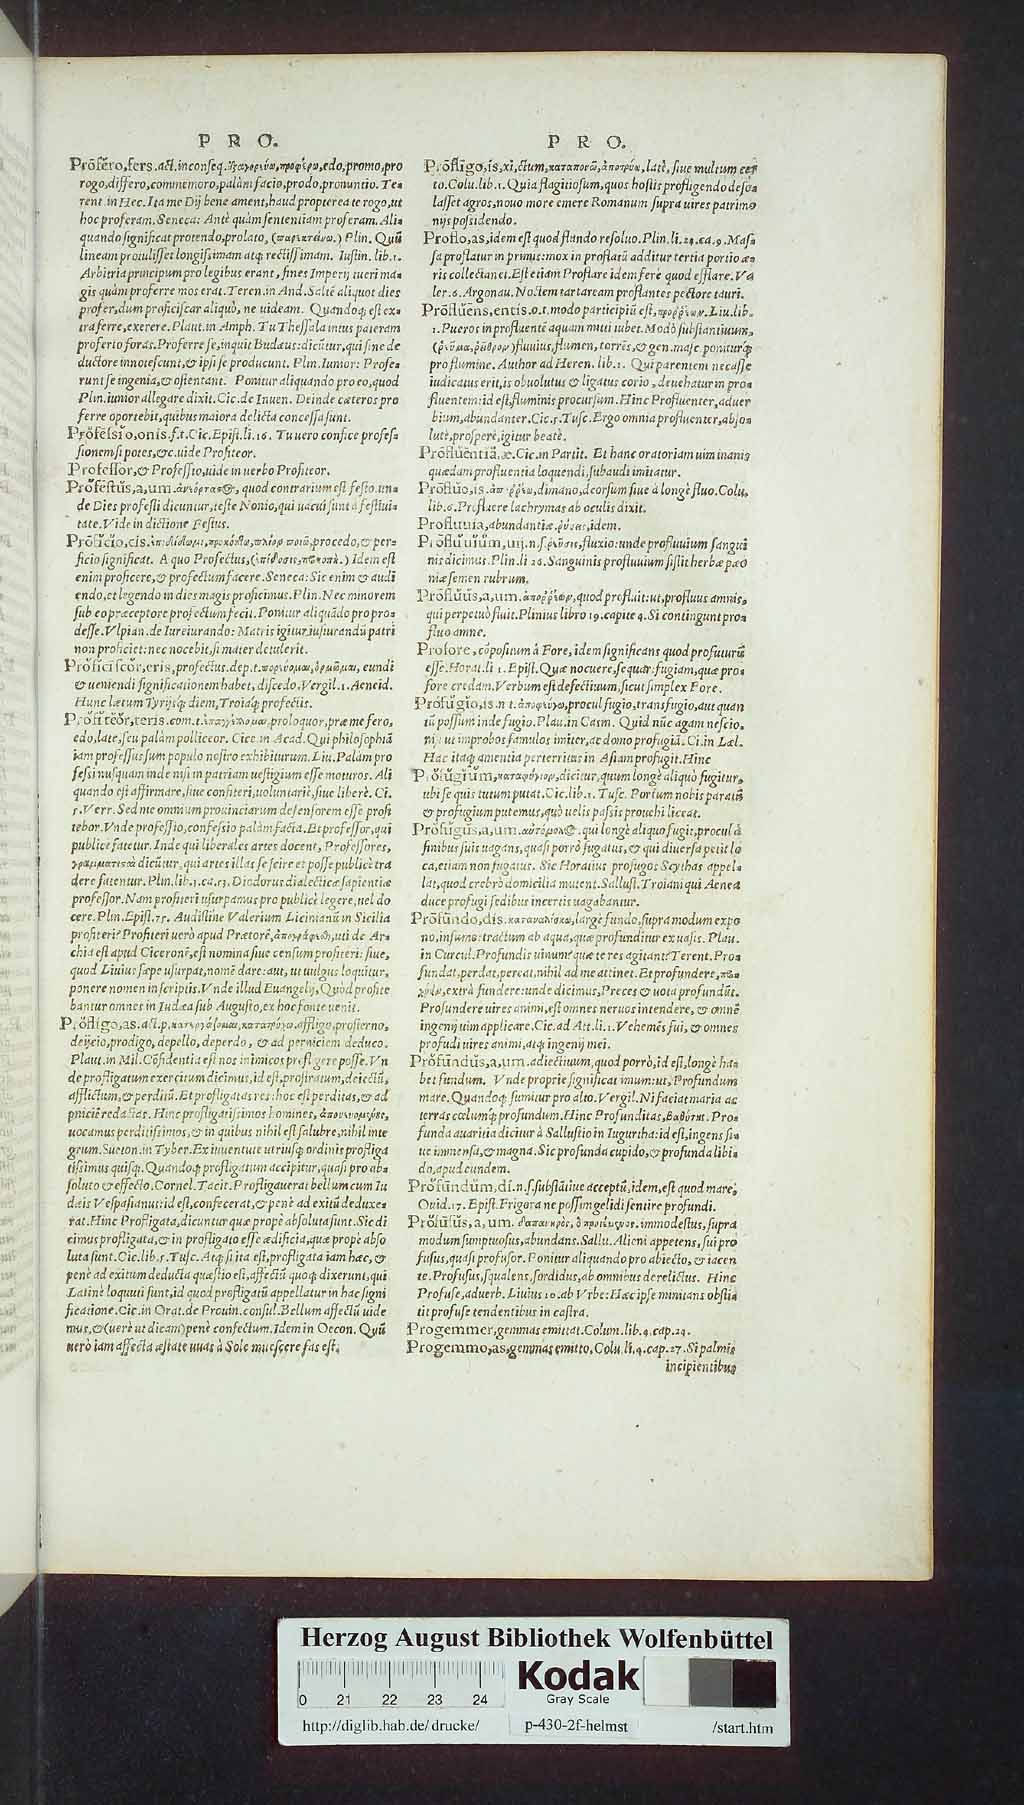 P R O.
Prōfĕro, fers. act. in conseq. ἐξαγορεύω, προφέρω, edo, promo, pro
rogo, differo, commemoro, palàm facio, prodo, pronuntio. Te-
rent. in Hec. Ita me Dij bene ament, haud propterea te rogo, ut
hoc proferam. Seneca: Antè quàm sententiam proferam. Ali
quando significat protendo, prolato, (παρεκτείνω.) Plin. Quū
lineam protulisset longissimam atq́; rectissimam. Iustin. lib. 1.
Arbitria principum pro legibus erant, fines Imperij tueri ma-
gis quàm proferre mos erat. Teren. in And. Saltē aliquot dies
profer, dum proficiscar aliquò, ne uideam. Quandoq; est ex-
tra ferre, exerere. Plaut. in Amph. Tu Thessala intus pateram
proferto foras. Proferre se, inquit Budæus: dicitur, qui sine de
ductore innotescunt, & ipsi se producunt. Plin. Iunior: Profe-
runt se ingenia, & ostentant. Ponitur aliquando pro eo, quod
Plin. iunior allegare dixit. Cic. de Inuen. Deinde cæteros pro
ferre oportebit, quibus maiora delicta concessa sunt.
Prŏfēssĭo, onis. f. t. Cic. Epist. li. 16. Tu uero confice profes-
sionem si potes, &c. uide Profiteor.
Professor, & Professio, uide in uerbo Profiteor.
Prŏfēstŭs, a, um. quod contrarium est festo. un-
de Dies profesti dicuntur, teste Nonio, qui uacui sunt à festiui-
tate. Vide in dictione Festus.
Prōfĭcĭo, cis. ἐπιδίδωμι, προκόπτω, πλέον ποιῶ, procedo, & per-
ficio significat. A quo Profectus, (ἐπίδοσις, προκοπὴ.) Idem est
enim proficere, & profectum facere. Seneca: Sic enim & audi
endo, et legendo in dies magis proficimus. Plin. Nec minorem
sub eo præceptore profectum fecit. Ponitur aliquādo pro pro-
desse. Vlpian. de Iureiurando: Matris igitur iusiurandū patri
non proficiet: nec nocebit, si mater detulerit.
Prŏfĭcīscŏr, eris, profectus. dep. t. πορεύομαι, ὁρμῶμαι, eundi
& ueniendi significationem habet, discedo. Vergil. 1. Aeneid.
Hunc lætum Tyrijsq́; diem, Troiaq́; profectis.
Prŏfĭtĕŏr, teris. com. t. ἐπαγγέλλομαι, proloquor, præ me fero,
edo, late, seu palàm polliceor. Cice. in Acad. Qui philosophiā
iam professus sum populo nostro exhibiturum. Liu. Palàm pro
fessi nusquam inde nisi in patriam uestigium esse moturos. Ali
quando est affirmare, siue confiteri, uoluntariè, siue liberè. Ci.
5. Verr. Sed me omnium prouinciarum defensorem esse profi
tebor. Vnde professio, confessio palàm facta. Et professor, qui
publicè fatetur. Inde qui liberales artes docent, Professores,
γραμματικοὶ dicūtur, qui artes illas se scire et posse publicè tra
dere fatentur. Plin. lib. 1. ca. 53. Diodorus dialecticæ sapientiæ
professor. Nam profiteri usurpamus pro publicè legere, uel do
cere. Plin. Epist. 75. Audistine Valerium Licinianū in Sicilia
profiteri? Profiteri uerò apud Prætorē, ἀπογράφεσθαι, uti de Ar-
chia est apud Ciceronē, est nomina siue censum profiteri: siue,
quod Liuius sæpe usurpat, nomē dare: aut, ut uulgus loquitur,
ponere nomen in scriptis. Vnde illud Euangelij, Quòd profite
bantur omnes in Iudæa sub Augusto, ex hoc fonte uenit.
Prŏflīgo, as. act. p. affligo, prosterno,
deijcio, prodigo, depello, deperdo, & ad perniciem deduco.
Plaut. in Mil. Cōfidentia est nos inimicos profligere posse. Vn
de profligatum exercitum dicimus, id est, prostratum, deiectū,
afflictum, & perditū. Et profligatas res: hoc est perditas, & ad
pniciē redactas. Hinc profligatissimos homines,
uocamus perditissimos, & in quibus nihil est salubre, nihil inte
grum. Sueton. in Tyber. Ex iuuentute utriusq́; ordinis profliga
tissimus quisq́;. Quandoq́; profligatum accipitur, quasi pro ab-
soluto & effecto. Cornel. Tacit. Profligauerat bellum cum Iu
dæis Vespasianus: id est, confecerat, & penè ad exitū deduxe-
rat. Hinc Profligata, dicuntur quæ propè absoluta sunt. Sic di
cimus profligata, & in profligato esse ædificia, quæ propè abso
luta sunt. Cic. lib. 5. Tusc. Atq́; si ita est, profligata iam hæc, &
penè ad exitum deducta quæstio est, affectū quoq́; dixerunt, qui
Latinè loquuti sunt, id quod profligatū appellatur in hac signi
ficatione. Cic. in Orat. de Prouin. consul. Bellum affectū uide
mus, & (uerè ut dicam) penè confectum. Idem in Oecon. Quū
uerò iam affecta æstate uuas à Sole mitescere fas est.
P R O.
Prōflīgo, is, xi, ctum, latè, siue multum cer-
to. Colu. lib. 1. Quia flagitiosum, quos hostis profligendo deso-
lasset agros, nouo more emere Romanum supra uires patrimo
nijs possidendo.
Proflo, as, idem est quod flando resoluo. Plin. li. 24. ca. 9. Mas-
sa proflatur in primus: mox in proflatū additur tertia portio æ-
ris collectanei. Est etiam Proflare idem ferè quod efflare. Va
ler. 6. Argonau. Noctem tartaream proflantes pectore tauri.
Prōflŭēns, entis. o. t. modo participiū est, προρρέων. Liu. lib.
1. Pueros in profluentē aquam mitti iubet. Modò substantiuum,
(ῥεῦμα, ῥεῖθρον) fluuius, flumen, torrēs, & gen. masc. ponitur q́;
pro flumine. Author ad Heren. lib. 1. Qui parentem necasse
iudicatus erit, is obuolutus & ligatus corio, deuehatur in pro-
fluentem: id est, fluminis procursum. Hinc Profluenter, aduer
bium, abundanter. Cic. 5. Tusc. Ergo omnia profluenter, abso-
lutè, prosperè, igitur beatè.
Prōflŭēntĭă, æ. Cic. in Partit. Et hanc oratoriam uim inanis
quædam profluentia loquendi, subaudi imitatur.
Prōflŭo, is. dimano, deorsum siue à longè fluo. Colu.
lib. 6. Profluere lachrymas ab oculis dixit.
Profluuia, abundantiæ. ῥύσεις, idem.
Prōflŭuĭŭm, uij. n. s. ῥεῦσις, fluxio: unde profluuium sangui
nis dicimus. Plin. li 26. Sanguinis profluuium sistit herbæ pæo
niæ semen rubrum.
Prōflŭŭs, a, um. ἀπορρέων, quod profluit: ut, profluus amnis,
qui perpetuò fluit. Plinius libro 19. capite 4. Si contingunt pro-
fluo amne.
Profore, cōpositum à Fore, idem significans quod profuturū
esse. Horat. li 1. Epist. Quæ nocuere, sequar: fugiam, quæ pro-
fore credam. Verbum est defectiuum, sicut simplex Fore.
Prŏfŭgĭo, is. n t. ἀποφεύγω, procul fugio, transfugio, aut quan
tū possum inde fugio. Plau. in Casin. Quid nūc agam nescio,
ni ut improbos famulos imiter, ac domo profugiā. Ci. in Læl.
Hac itaq́; amentia perterritus in Asiam profugit. Hinc
Prŏfŭgĭŭm, καταφύγιον, dicitur, quum longè aliquò fugitur,
ubi se quis tutum putat. Cic. lib. 1. Tusc. Portum nobis paratū
& profugium putemus, quò uelis passis prouehi liceat.
Prŏfŭgŭs, a, um. αὐτόμολος. qui longè aliquo fugit, procul à
finibus suis uagans, quasi porrò fugatus, & qui diuersa petit lo
ca, etiam non fugatus. Sic Horatius profugos Scythas appel-
lat, quod crebrò domicilia mutent. Sallust. Troiani qui Aenea
duce profugi sedibus incertis uagabantur.
Prŏfūndo, dis. καταναλίσκω, largè fundo, supra modum expo
no, insumo: tractum ab aqua, quæ profunditur ex uasis. Plau.
in Curcul. Profundis uinum? quæ te res agitant? Terent. Pro-
fundat, perdat, pereat, nihil ad me attinet. Et profundere,
extrà fundere: unde dicimus, Preces & uota profundūt.
Profundere uires animi, est omnes neruos intendere, & omnē
ingenij uim applicare. Cic. ad Att. li. 1. Vehemēs fui, & omnes
profudi uires animi, atq́; ingenij mei.
Prŏfūndŭs, a, um. adiectiuum, quod porrò, id est, longè ha-
bet fundum. Vnde propriè significat imum: ut, Profundum
mare. Quandoq́; sumitur pro alto. Vergil. Ni faciat maria ac
terras cœlumq́; profundum. Hinc Profunditas, βαθύτης. Pro-
funda auaritia dicitur à Sallustio in Iugurtha: id est, ingens si-
ue immensa, & magna. Sic profunda cupido, & profunda libi-
do, apud eundem.
Prŏfūndŭm, di. n. s. substātiuè acceptū, idem, est quod mare.
Ouid. 17. Epist. Frigora ne possim gelidi sentire profundi.
Prŏfūsŭs, a, um. δαπανηρὸς, immodestus, supra
modum sumptuosus, abundans. Sallu. Alieni appetens, sui pro
fusus, quasi profusor. Ponitur aliquando pro abiecto, & iacen
te. Profusus, squalens, sordidus, ab omnibus derelictus. Hinc
Profuse, aduerb. Liuius 10. ab Vrbe: Hæc ipse minitans obsti-
tit profuse tendentibus in castra.
Progemmet, gemmas emittat. Colum. lib. 4. cap. 24.
Progemmo, as, gemmas emitto, Colu. li. 4. cap. 27. Si palmis
incipientibus
Herzog August Bibliothek Wolfenbüttel
Kodak
Gray Scale
0 21 22 23 24
http://diglib.hab.de/drucke/ p-430-2f-helmst /start.htm